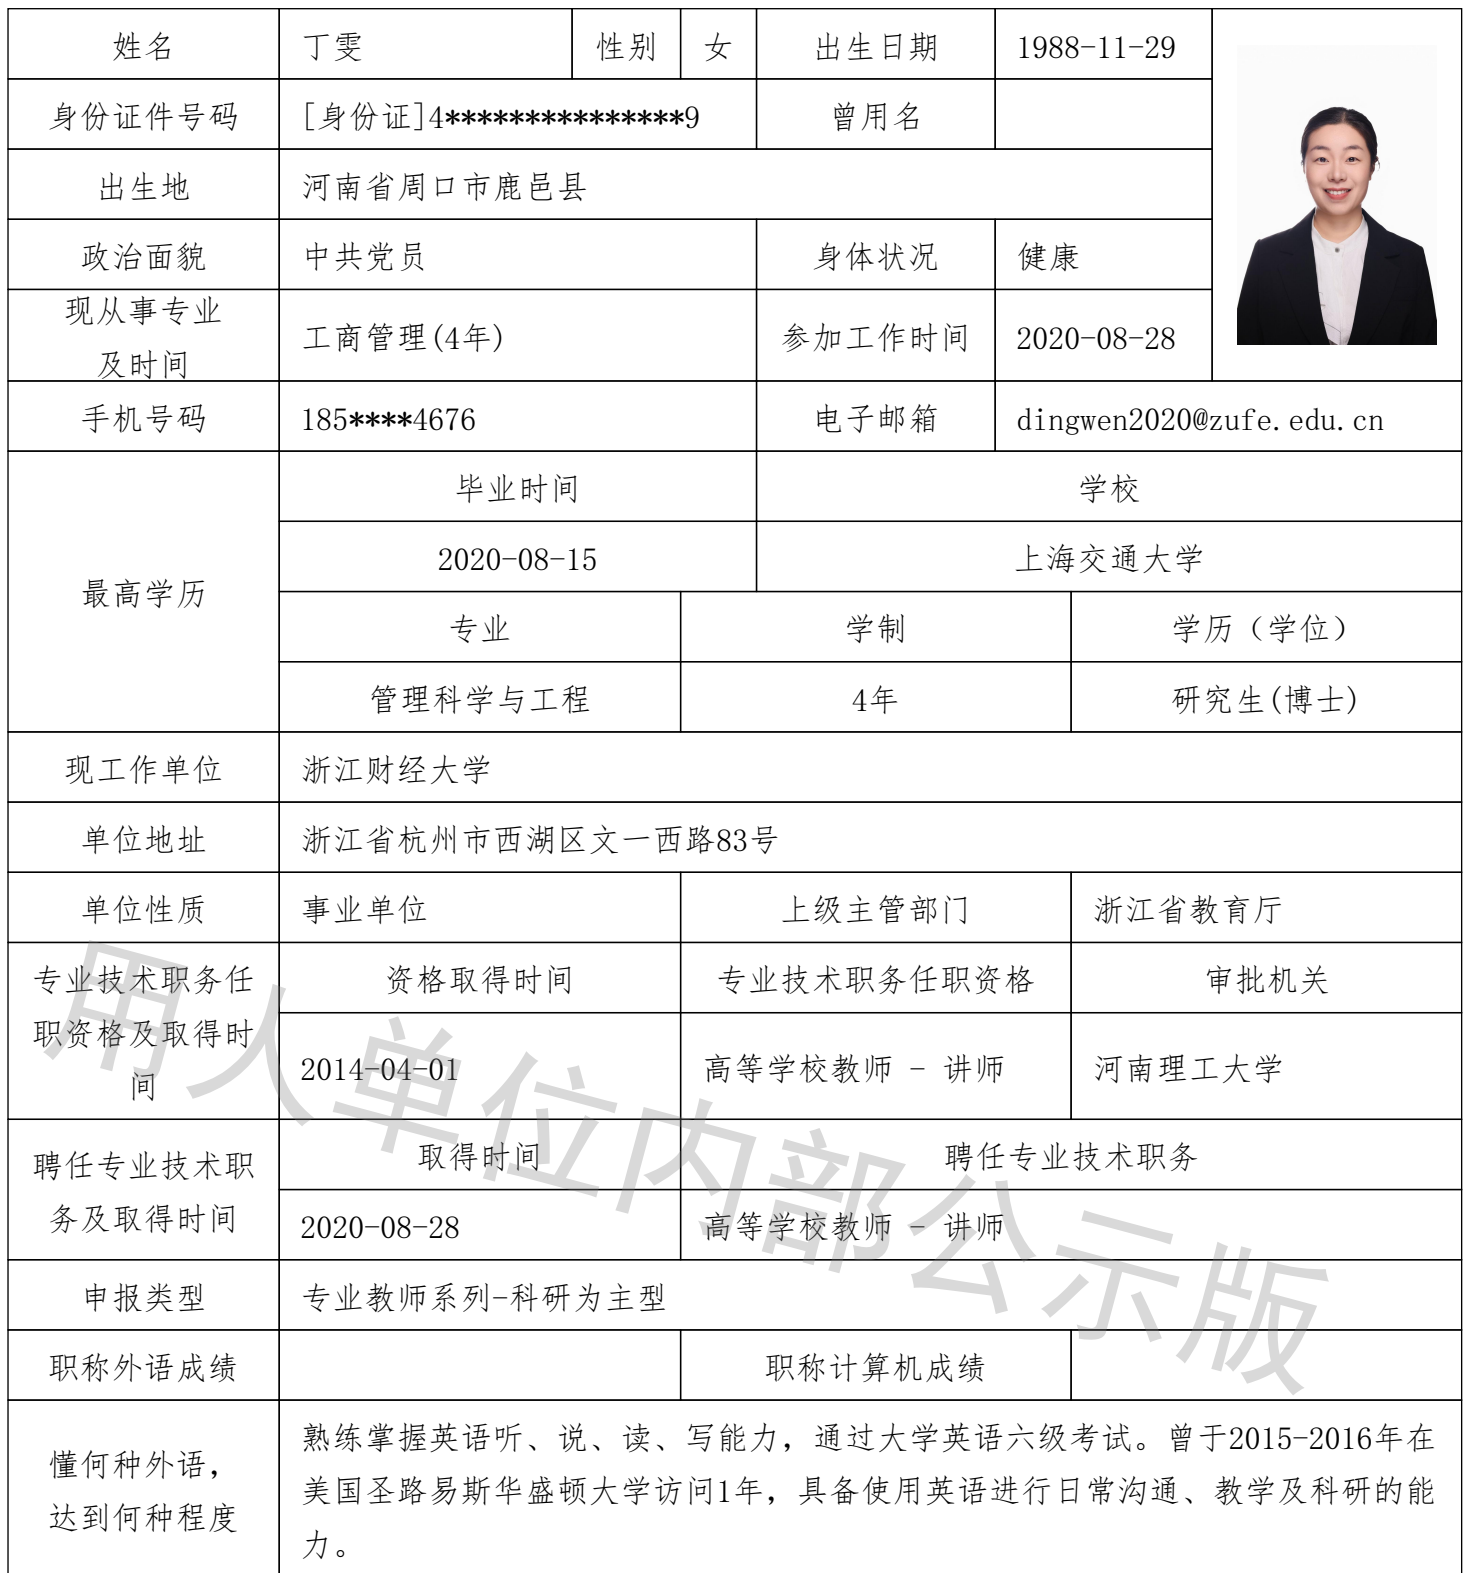 姓名 丁雯 性别 女 出生日期 1988-11-29
身份证件号码 [身份证]4***************9 曾用名
出生地 河南省周口市鹿邑县
政治面貌 中共党员 身体状况 健康
现从事专业
及时间
工商管理(4年) 参加工作时间 2020-08-28
手机号码 185****4676 电子邮箱 dingwen2020@zufe.edu.cn
最高学历
毕业时间 学校
2020-08-15 上海交通大学
专业 学制 学历（学位）
管理科学与工程 4年 研究生(博士)
现工作单位 浙江财经大学
单位地址 浙江省杭州市西湖区文一西路83号
单位性质 事业单位 上级主管部门 浙江省教育厅
专业技术职务任
职资格及取得时
间
资格取得时间 专业技术职务任职资格 审批机关
2014-04-01 高等学校教师 - 讲师 河南理工大学
聘任专业技术职
务及取得时间
取得时间 聘任专业技术职务
2020-08-28 高等学校教师 - 讲师
申报类型 专业教师系列-科研为主型
职称外语成绩 职称计算机成绩
懂何种外语，
达到何种程度
熟练掌握英语听、说、读、写能力，通过大学英语六级考试。曾于2015-2016年在
美国圣路易斯华盛顿大学访问1年，具备使用英语进行日常沟通、教学及科研的能
力。
用人单位内部公示版